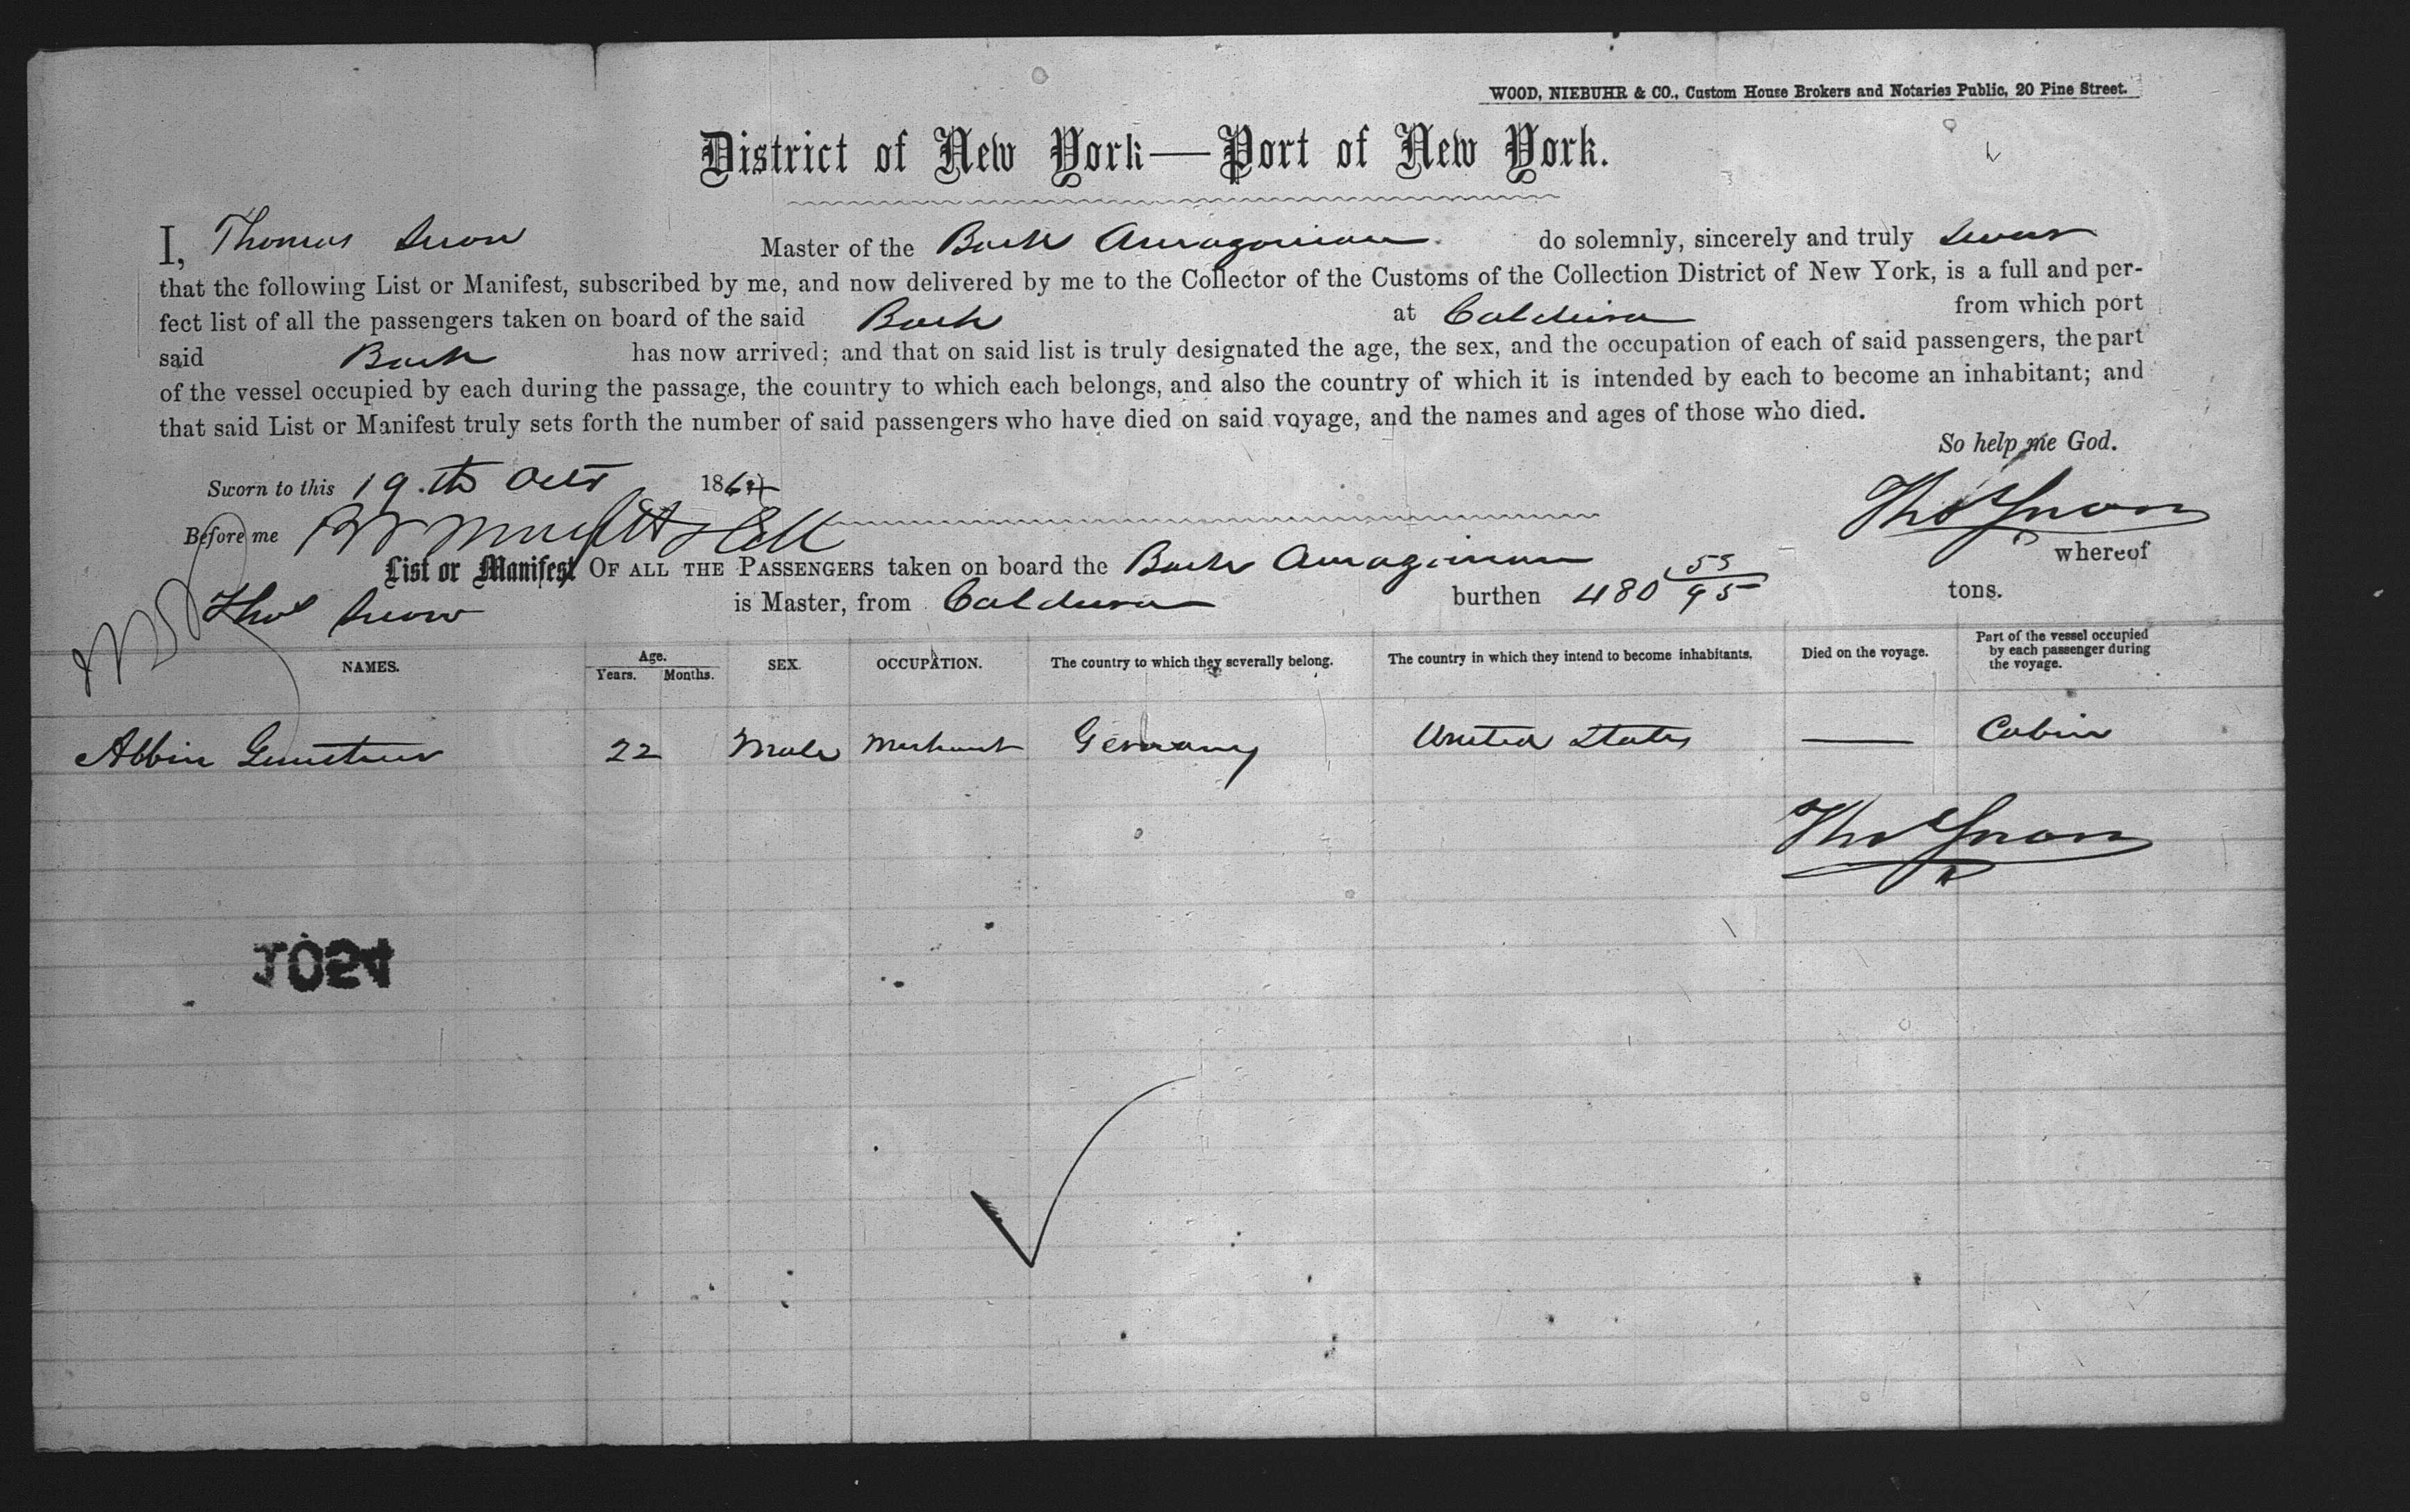 WOOD, NIEBUHR & CO., Custom House Brokers and Notaries Public, 20 Pine Street.
District of New York—Port of New York.
I, Thomas Snow Master of the Bark Arragonian do solemnly, sincerely and truly swear
that the following List or Manifest, subscribed by me, and now delivered by me to the Collector of the Customs of the Collection District of New York, is a full and per-
fect list of all the passengers taken on board of the said Bark at Caldera from which port
said Bark has now arrived; and that on said list is truly designated the age, the sex, and the occupation of each of said passengers, the part
of the vessel occupied by each during the passage, the country to which each belongs, and also the country of which it is intended by each to become an inhabitant; and
that said List or Manifest truly sets forth the number of said passengers who have died on said voyage, and the names and ages of those who died.
So help me God.
Sworn to this 19th Oct 1864
Before me
Thos Snow
List or Manifest OF ALL THE PASSENGERS taken on board the Bark whereof
Thos Snow is Master, from Caldera burthen 480 53/95 tons.
NAMES. Age. Years. Months. SEX. OCCUPATION. The country to which they severally belong. The country in which they intend to become inhabitants. Died on the voyage. Part of the vessel occupied by each passenger during the voyage.
22 Male Merchant Germany United States — Cabin
Thos Snow
1024